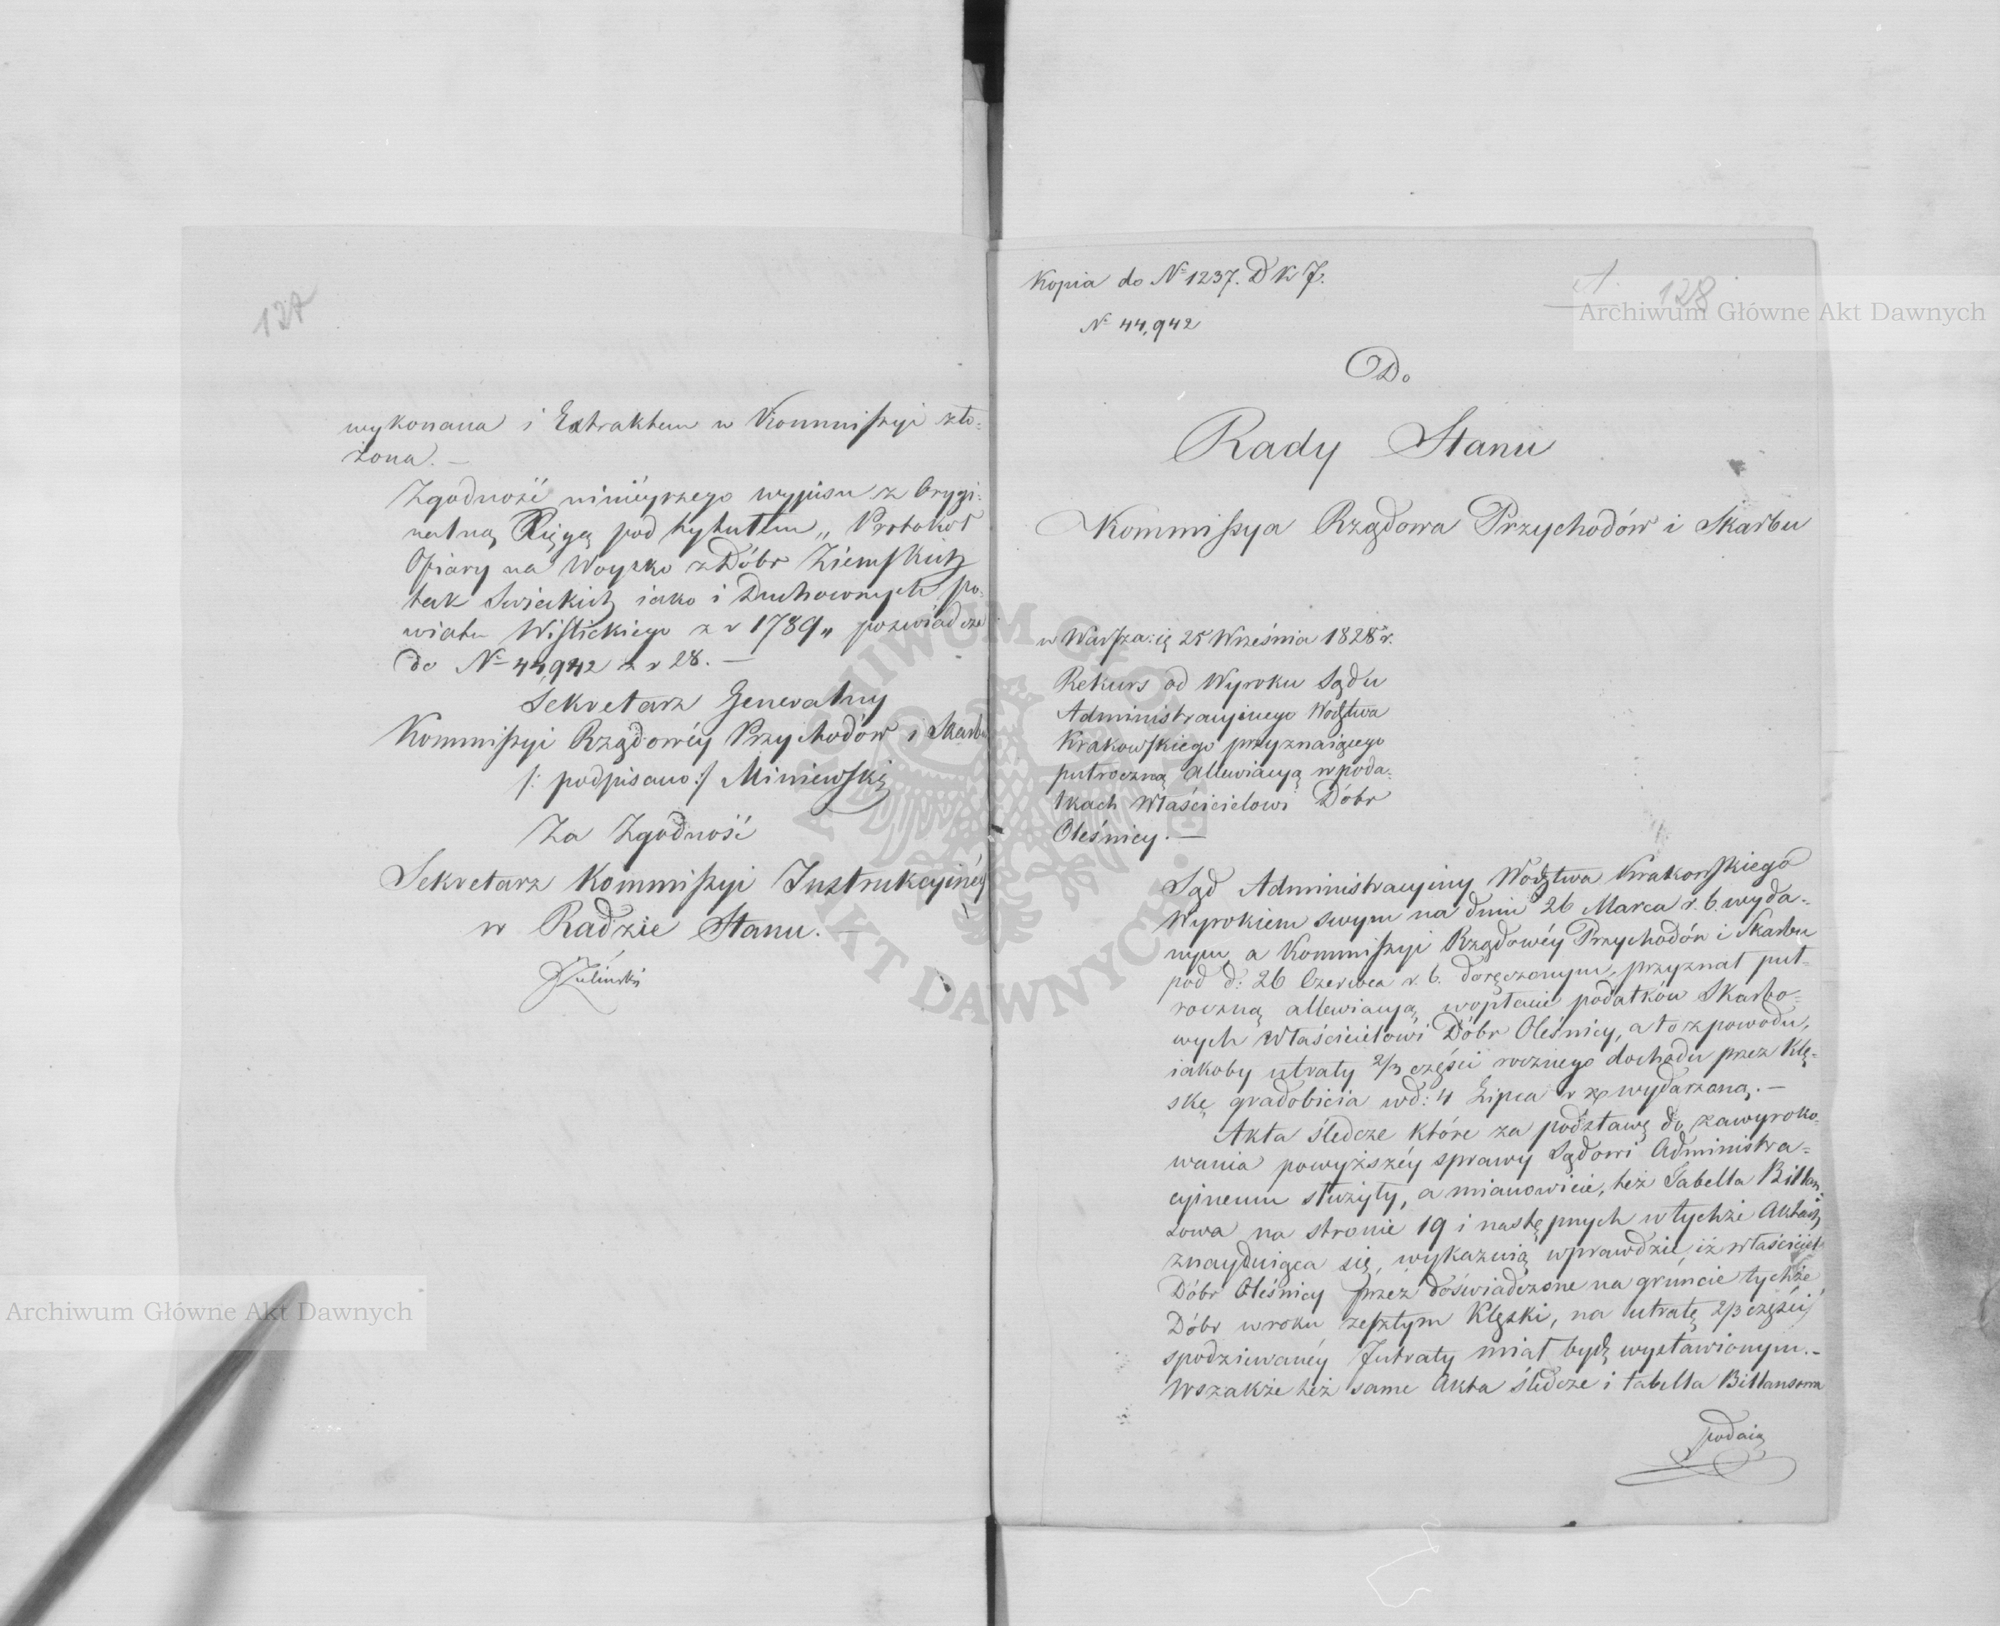 127
wykonana i Extraktem w Kommissyi zło-
żona. —
Zgodność ninieyszego wypisu z Orygi-
nalną Xięgą pod tytułem „ Protokół
Ofiary na Woysko z Dóbr Ziemskich
tak Swieckich iako i Duchownych po-
wiatu Wiślickiego z r 1789 „ poswiadcza
do No 44,942 z r 28. —
Sekretarz Generalny
Kommissyi Rządowéy Przychodów i Skarbu
/: podpisano :/ Miniewski
Za Zgodność
Sekretarz Kommissyi Instrukcyinéy
w Radzie Stanu. —
Kopia do No 1237. D K J.
No 44,942
128
Do
Rady Stanu
Kommissya Rządowa Przychodów i Skarbu
w Warsza: ię 25 Września 1828 r.
Rekurs od Wyroku Sądu
Administracyinego Wodztwa
Krakowskiego przyznaiącego
pułroczną allewiacyą w poda-
tkach Właścicielowi Dóbr
Oleśnicy. —
Sąd Administracyiny Wodztwa Krakowskiego
Wyrokiem swym na dniu 26 Marca r. b. wyda-
nym, a Kommissyi Rządowéy Przychodów i Skarbu
pod d: 26 Czerwca r. b. doręczonym, przyznał puł-
roczną allewiacyą w opłacie podatków Skarbo-
wych Właścicielowi Dóbr Oleśnicy, a to z powodu,
iakoby utraty 2/3 części rocznego dochodu przez Klę-
skę gradobicia w d: 4 Lipca r z wydarzoną. —
Akta śledcze które za podstawę do zawyroko-
wania powyższéy sprawy Sądowi Administra-
cyinemu służyły, a mianowicie, też Tabella Billan-
sowa na stronie 19 i następnych w tychże Aktach
znayduiąca się, wykazuią wprawdzie, iż właściciel
Dóbr Oleśnicy przez doświadczone na gruncie tychże
Dóbr w roku zeszłym Klęski, na utratę 2/3 części
spodziewanéy Intraty miał bydź wystawionym. —
Wszakże też same Akta śledcze i tabella Billansowa
podaią
Archiwum Główne Akt Dawnych
Archiwum Główne Akt Dawnych
ARCHIWUM GŁÓWNE AKT DAWNYCH